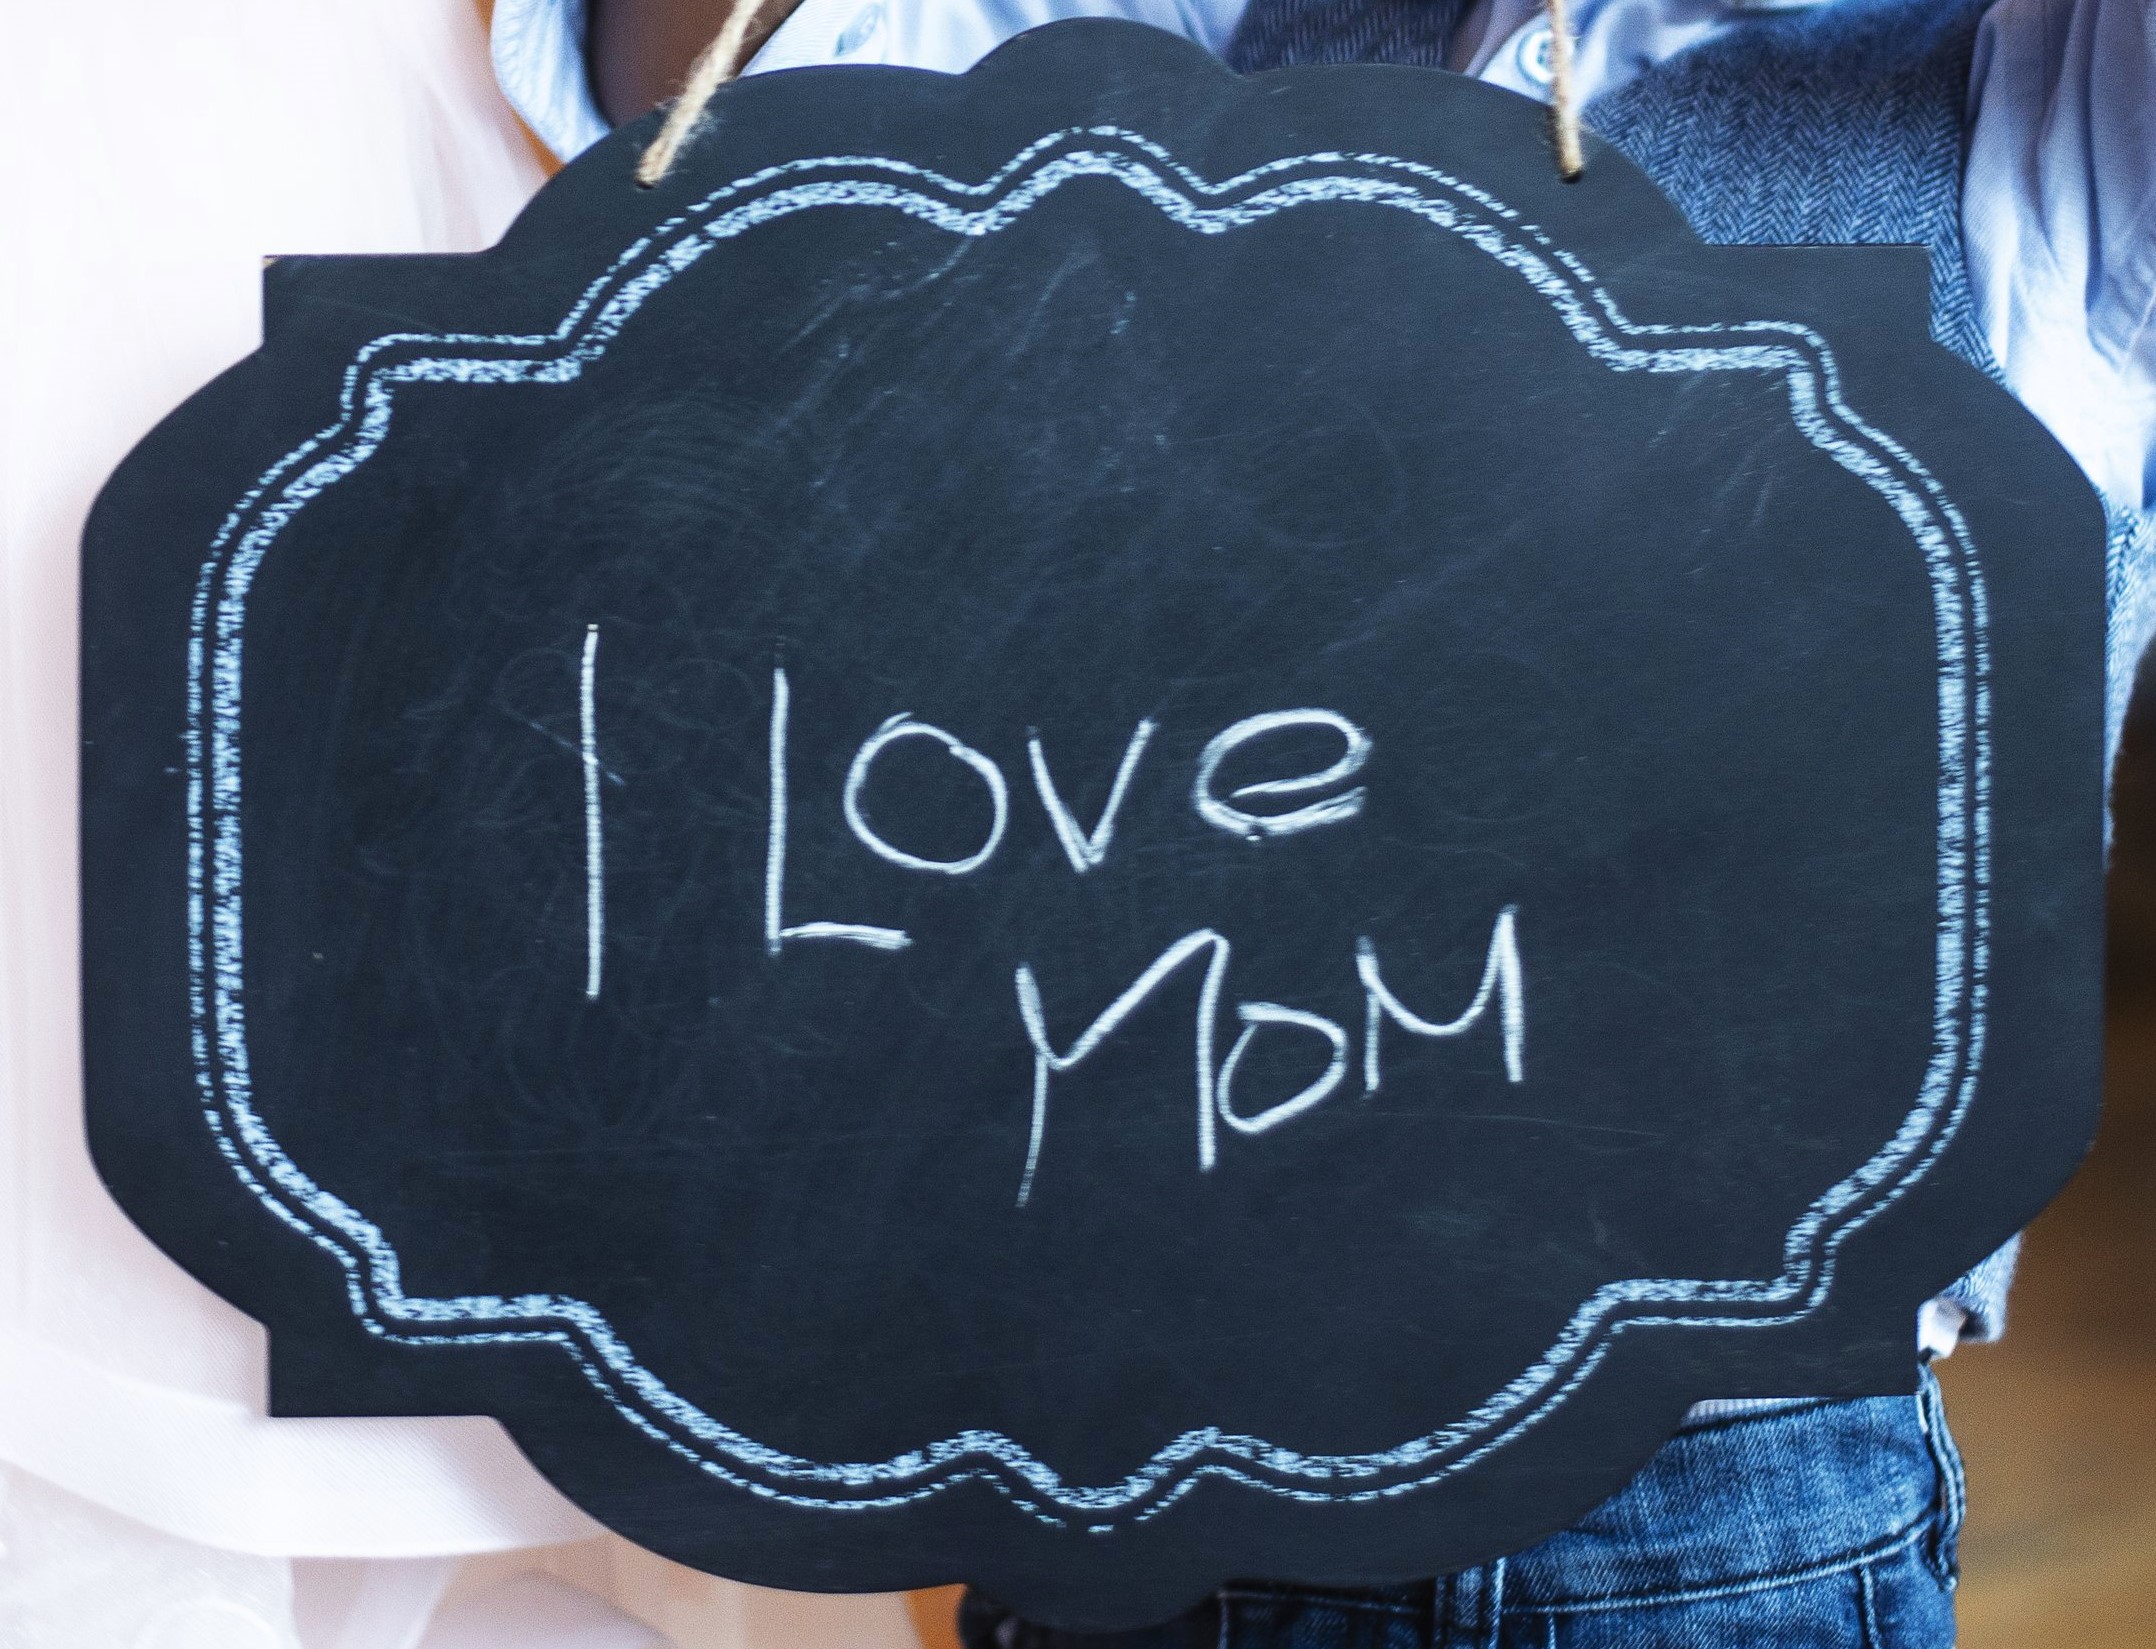 I Love
MoM